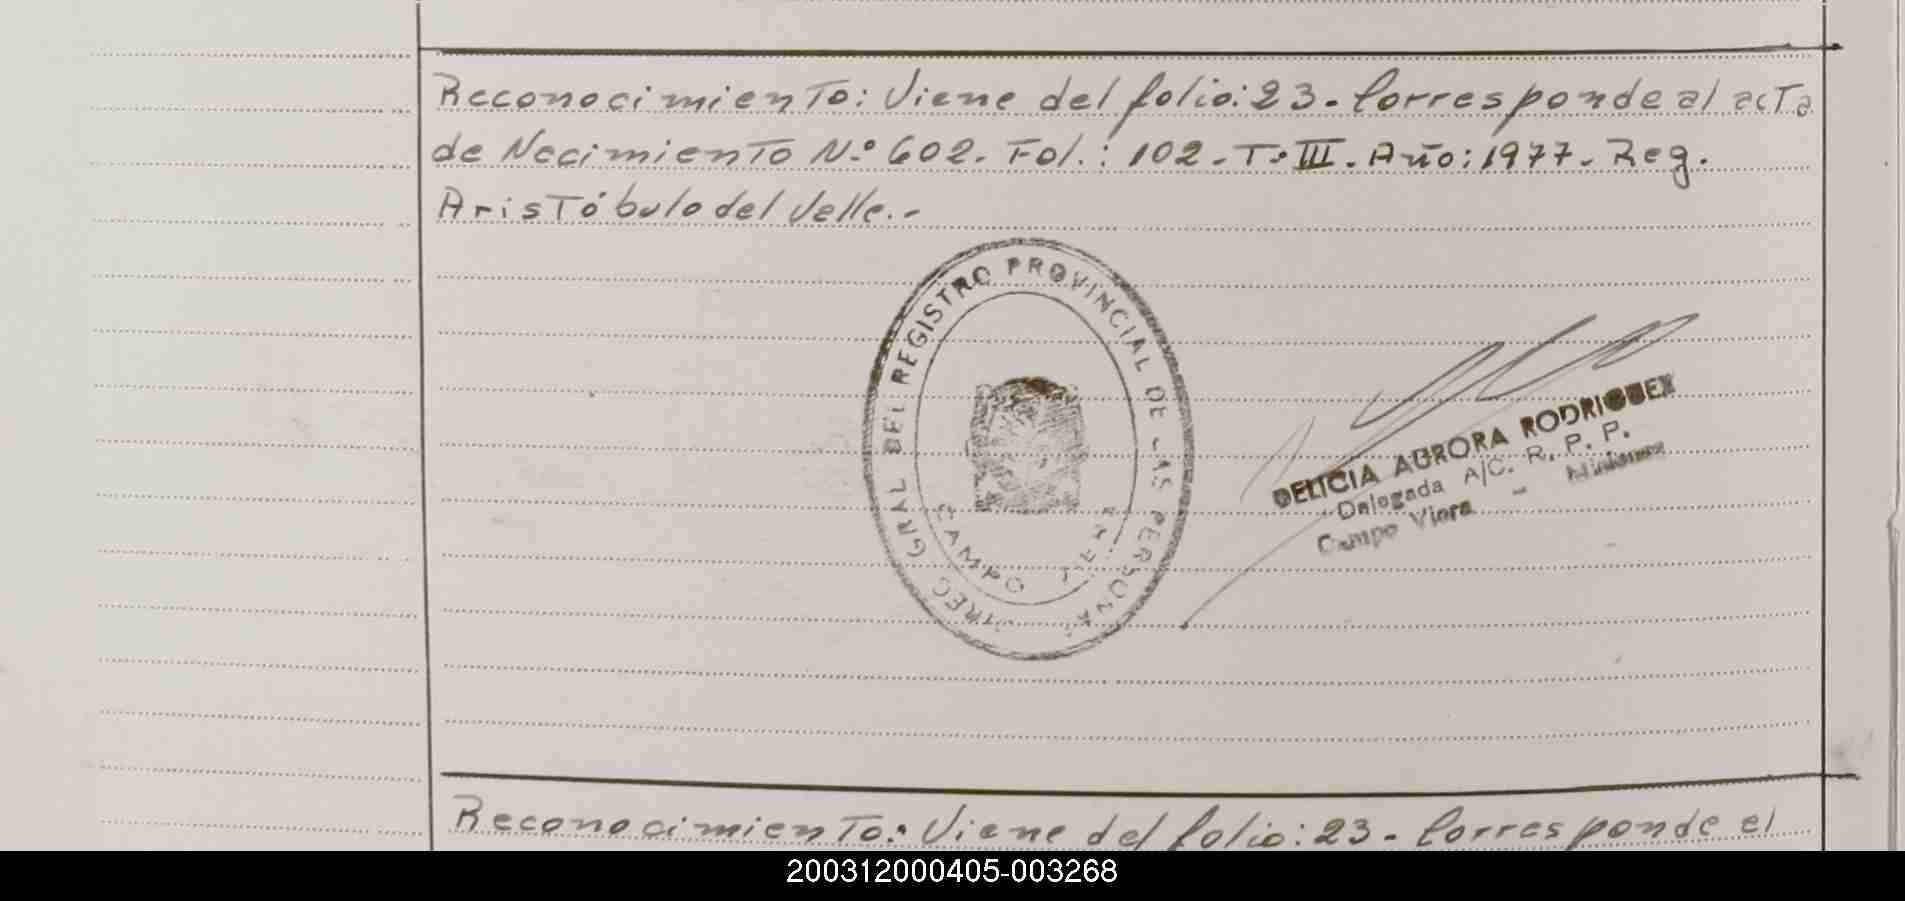 Reconocimiento: Viene del folio: 23. Corresponde al acta
de Necimiento N.º 602. Fol.: 102. T. III. Año: 1977. Reg.
Aristóbulo del Velle.-
DIREC GRAL DEL REGISTRO PROVINCIAL DE LAS PERSONAS
CAMPO
DELICIA AURORA RODRIGUEZ
Delegada A/C. R. P. P.
Campo Viera - Misiones
Reconocimiento: Viene del folio: 23 - Corresponde el
200312000405-003268